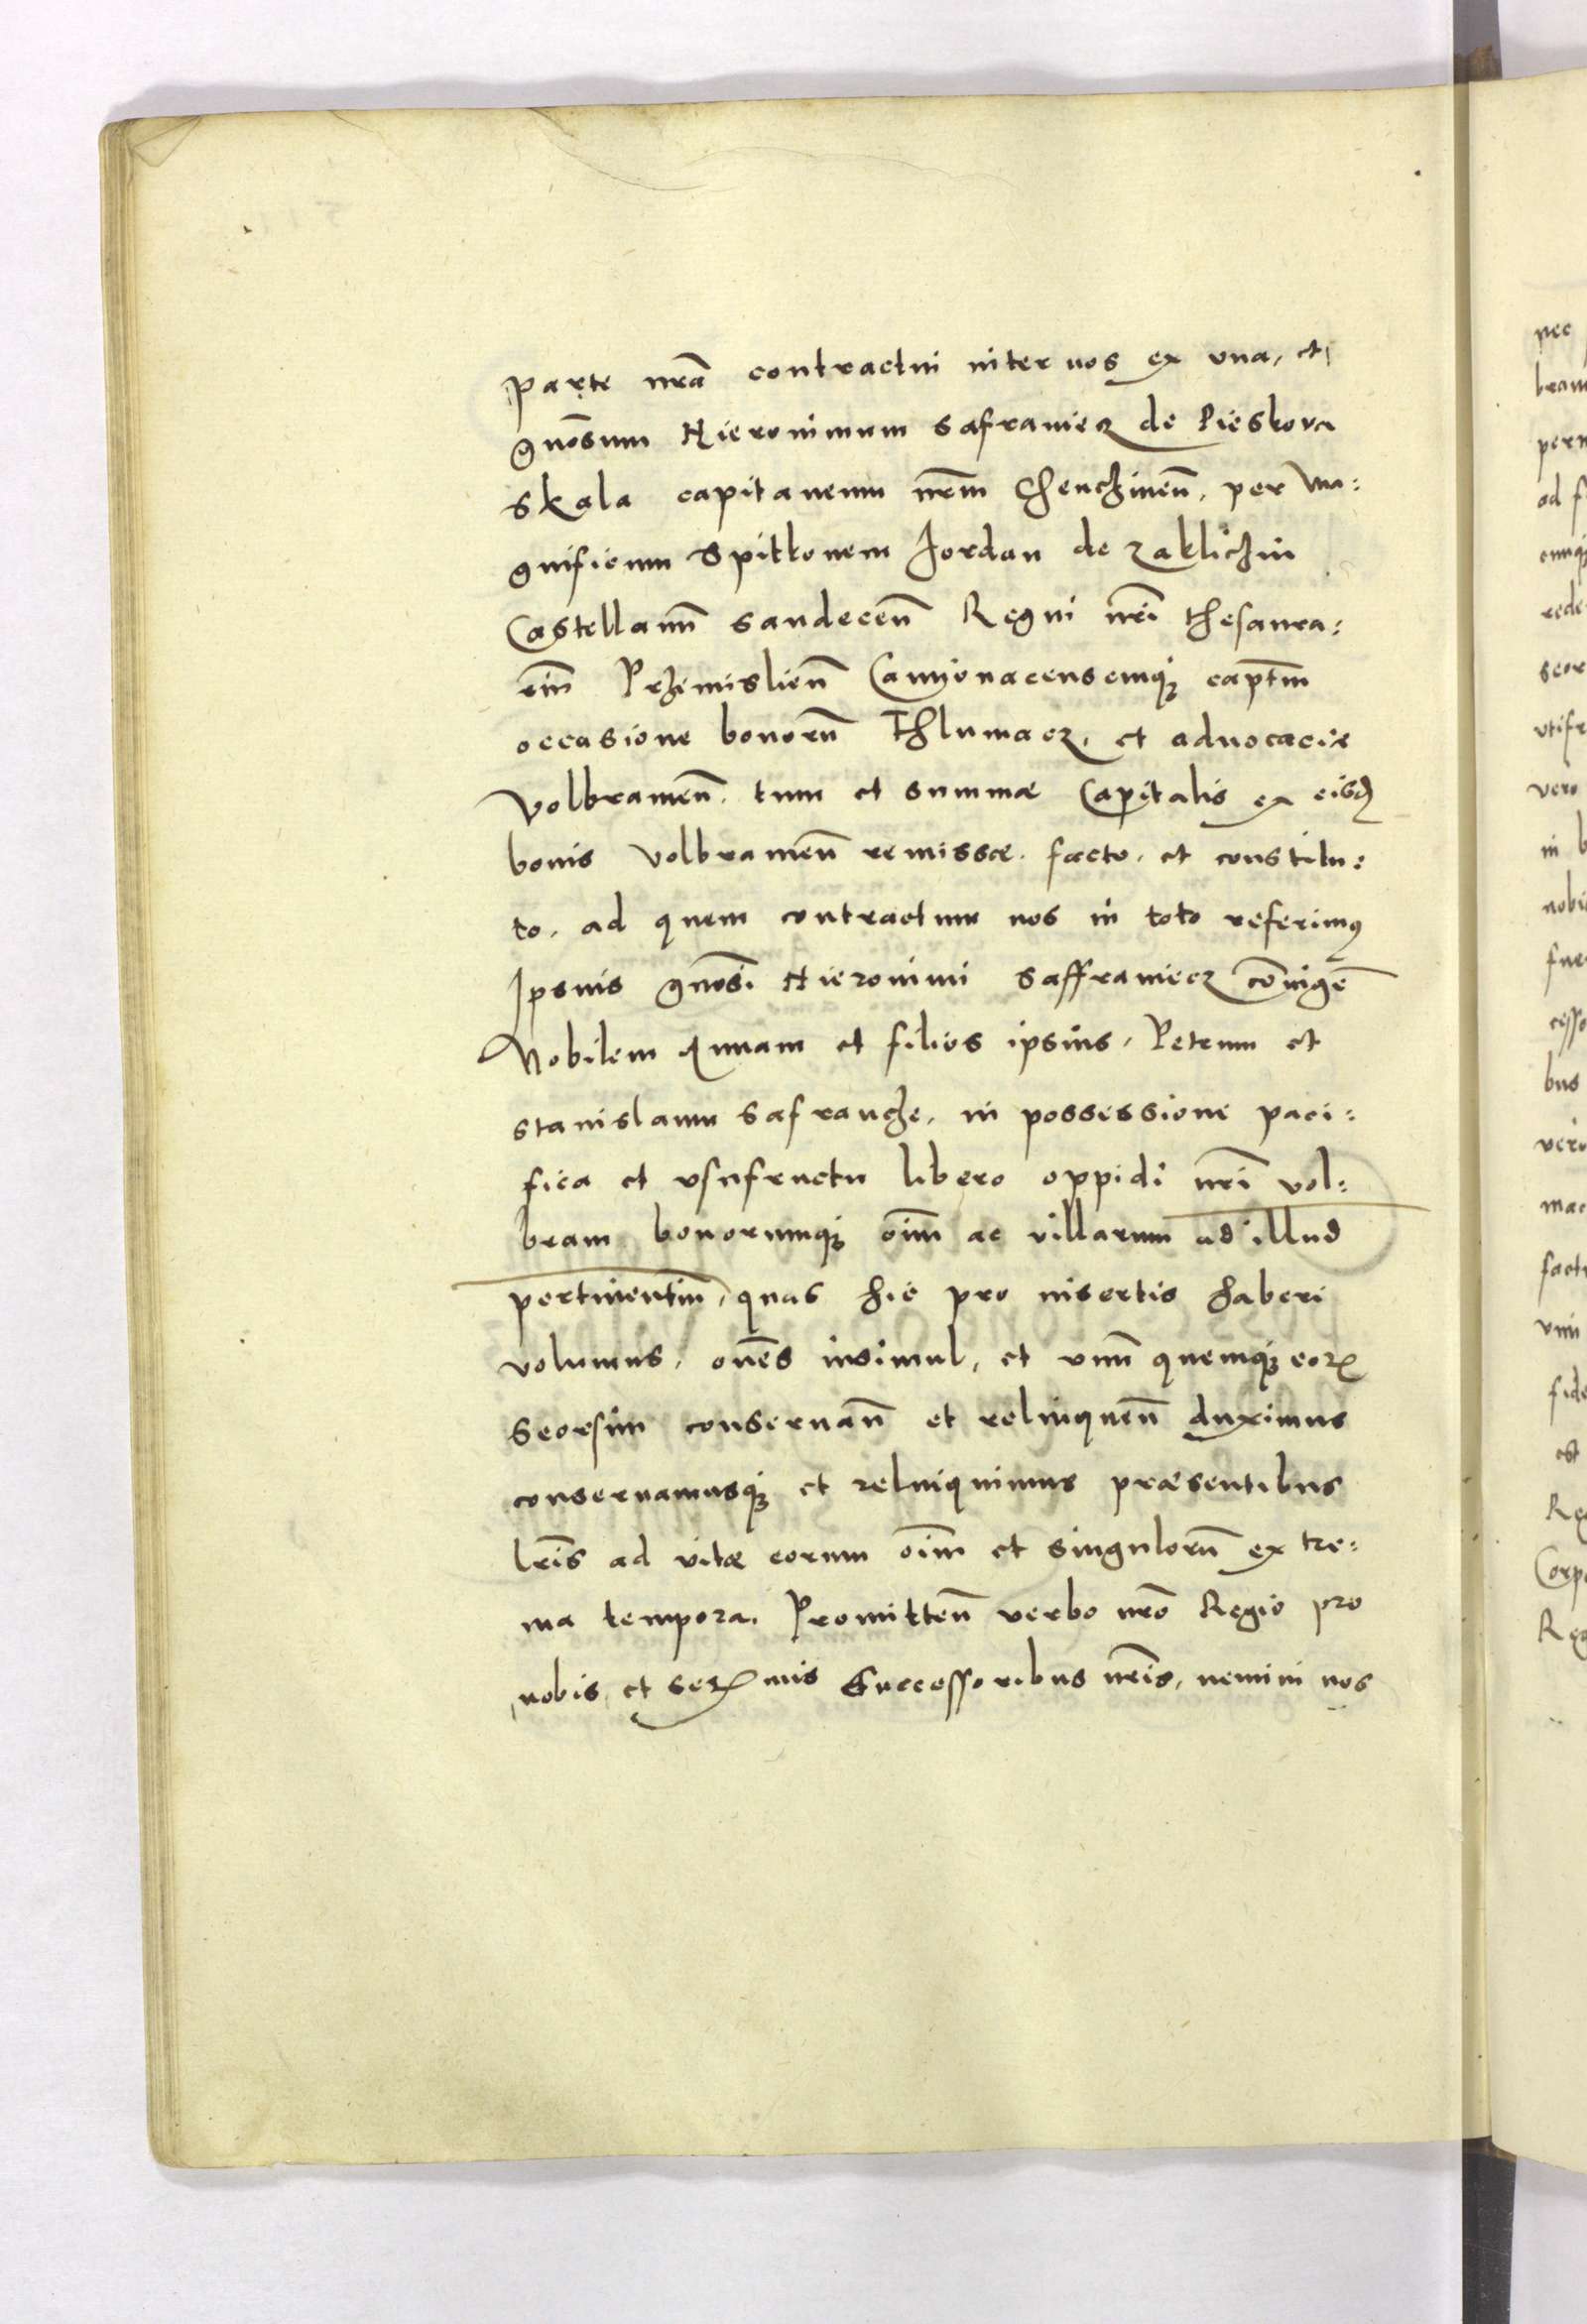 parte nr̃a contractui inter nos ex una, et
gnõsum Hieronimum Safraniecz de Pieskova
Skala capitaneum nr̃m Chenchinen̄, per Ma:
gnificum Spitkonem Jordan de Zaklichin
Castellanũ Sandecen̄ Regni nr̃i thesaura:
riũ Przimislien̄ Camionacensemq; capt̃m
occasione bonorũ Thlumacz, et advocaciæ
Volbramen̄. tum et summæ Capitalis ex eisd̃
bonis Volbramen̄ remissæ. facto. et constitu:
to. ad quem contractum nos in toto referimus
Ipsius gnõsi Hieronimi Saffraniecz cõniugẽ
Nobilem Annam et filios ipsius. Petrum et
Stanislaum Safranche. in possessione paci:
fica et usufructu libero oppidi nr̃i Vol:
bram bonorumq; oĩm ac villarum ad illud
pertinentiũ, quas hic pro insertis haberi
volumus. om̃es insimul, et unũ quemq; eorũ
seorsim conservan̄ et relinquen̄ duximus
conservamusq; et relinquimus præsentibus
lr̃is ad vitæ eorum oĩm et singulorũ extre:
ma tempora. Promitten̄ verbo nr̃o Regio pro
nobis et Ser̃mis Successoribus nr̃is, nemini nos
pec
bram
pern
od f
cunq;
rede
seor
utifr
vero
in b
nobis
fue
cesso
bus
vero
mac
fact
uni
fide
est
Reg
Corp
Reg